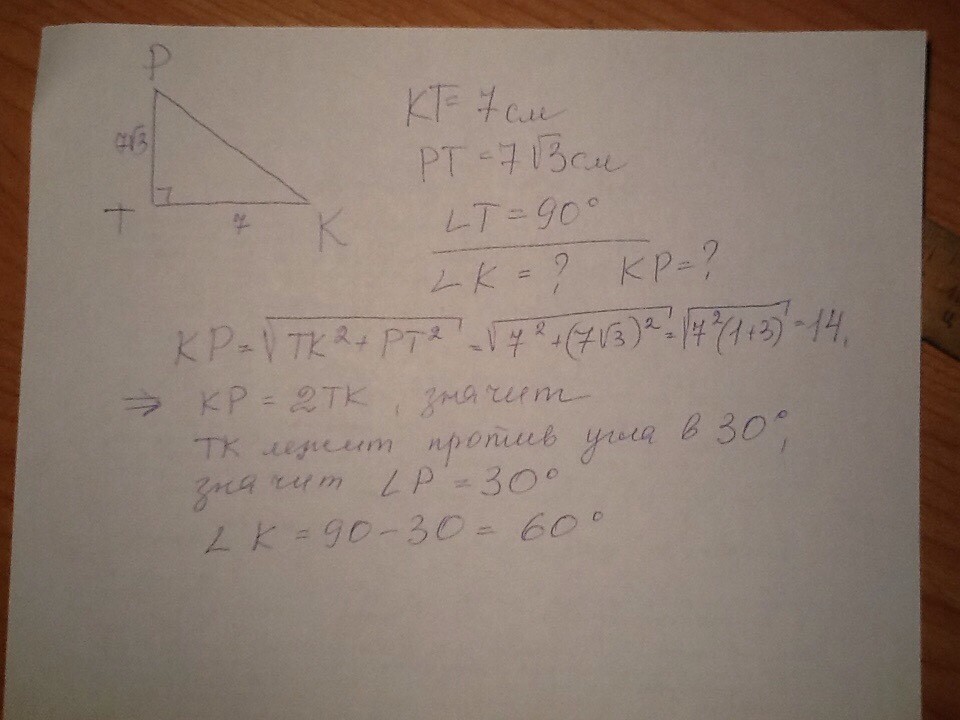 P
7√3
T
7
K
KT = 7 см
PT = 7√3 см
∠T = 90°
∠K = ? KP = ?
KP = √TK² + PT² = √7² + (7√3)² = √7²(1+3) = 14.
⇒ KP = 2TK, значит
TK лежит против угла в 30°,
значит ∠P = 30°
∠K = 90 - 30 = 60°